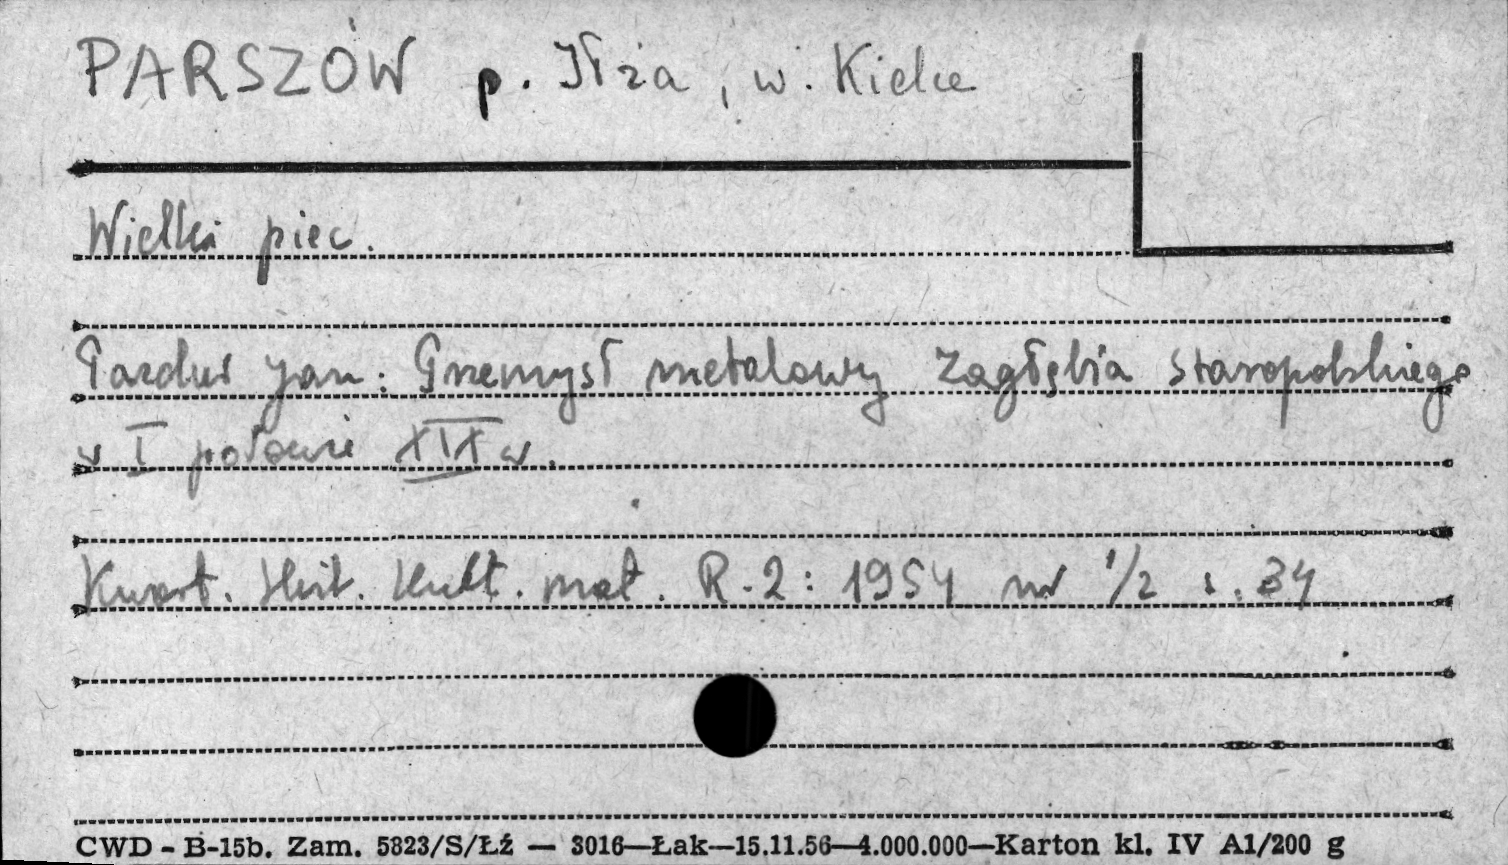 PARSZÓW p. Iłża, w. Kielce
Wielki piec.
Pazdur Jan: Przemysł metalowy Zagłębia Staropolskiego
w I połowie XIX w.
Kwart. Hist. Kult. mat. R-2: 1954 nr 1/2 s. 34
CWD - B-15b. Zam. 5823/S/Łź — 3016—Łak—15.11.56—4.000.000—Karton kl. IV A1/200 g